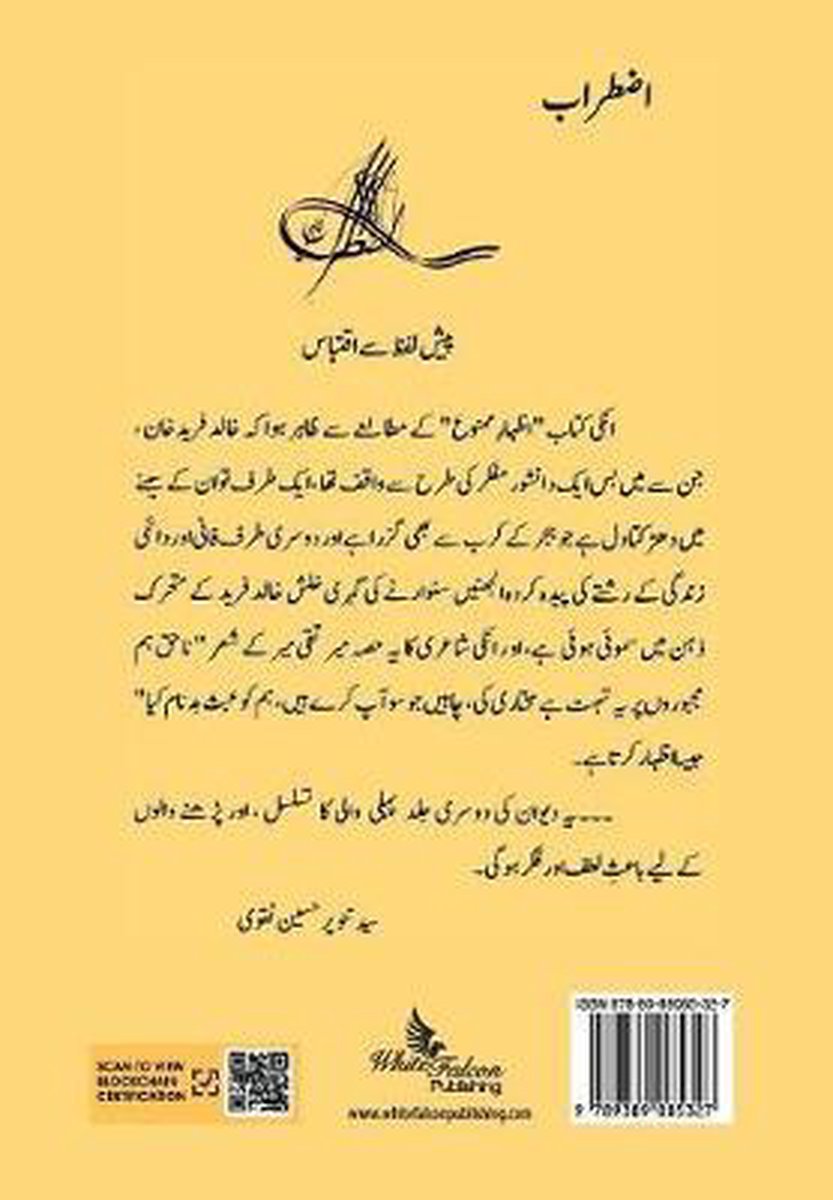 اضطراب
پیش لفظ سے اقتباس
انکی کتاب "اظہارِ ممنوع" کے مطالعے سے ظاہر ہوا کہ خالد فرید خان،
جن سے میں بس ایک دانشور مفکر کی طرح سے واقف تھا، ایک طرف تو ان کے سینے
میں دھڑکتا دل ہے جو ہجر کے کرب سے بھی گزرا ہے اور دوسری طرف فانی اور دائمی
زندگی کے رشتے کی پیدہ کردہ الجھنیں سنوارنے کی گہری خلش خالد فرید کے متحرک
ذہن میں سموئی ہوئی ہے، اور انکی شاعری کا یہ حصہ میر تقی میر کے شعر "ناحق ہم
مجبوروں پر یہ تہمت ہے مختاری کی، چاہیں جو سو آپ کرے ہیں، ہم کو عبث بدنام کیا"
جیسا اظہار کرتا ہے۔
----یہ دیوان کی دوسری جلد پہلی والی کا تسلسل، اور پڑھنے والوں
کے لیے باعثِ لطف اور فکر ہوگی۔
سید تنویر حسین نقوی
SCAN TO VIEW
BLOCKCHAIN
CERTIFICATION
White Falcon
Publishing
www.whitefalconpublishing.com
9 789389 085327